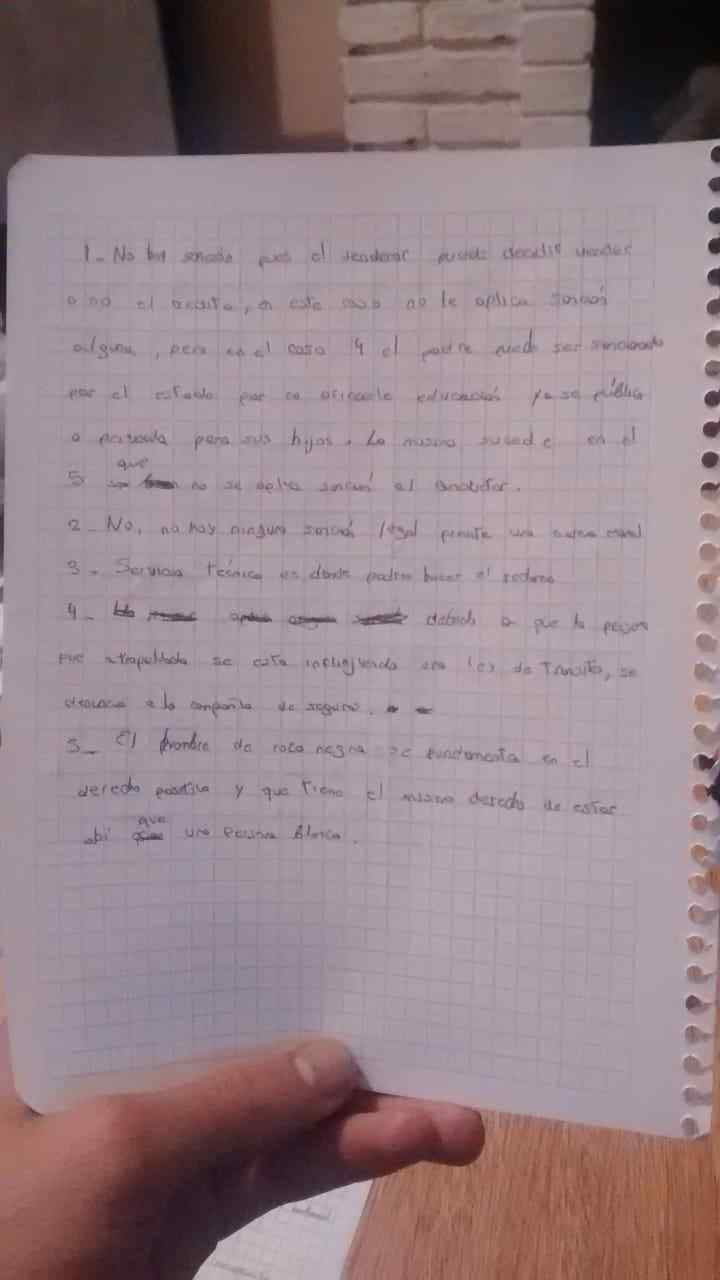 1- No hay sanción pues el vendedor puede decidir vender
o no el , en este caso no le aplica sanción
alguna, pero en el caso 4 el padre puede ser sancionado
por el estado por no educación ya sea pública
o para sus hijos. Lo mismo sucede en el
5 que no se aplica sanción al
2- No, no hay ninguna sanción legal una moral
3- Servicio técnico es donde podría hacer el reclamo
4- debido a que la persona
fue atropellada se esta una ley de transito, se
a la compañía de seguro.
5- El hombre de raza negra se fundamenta en el
derecho positivo y que tiene el mismo derecho de estar
ahí que una persona blanca.